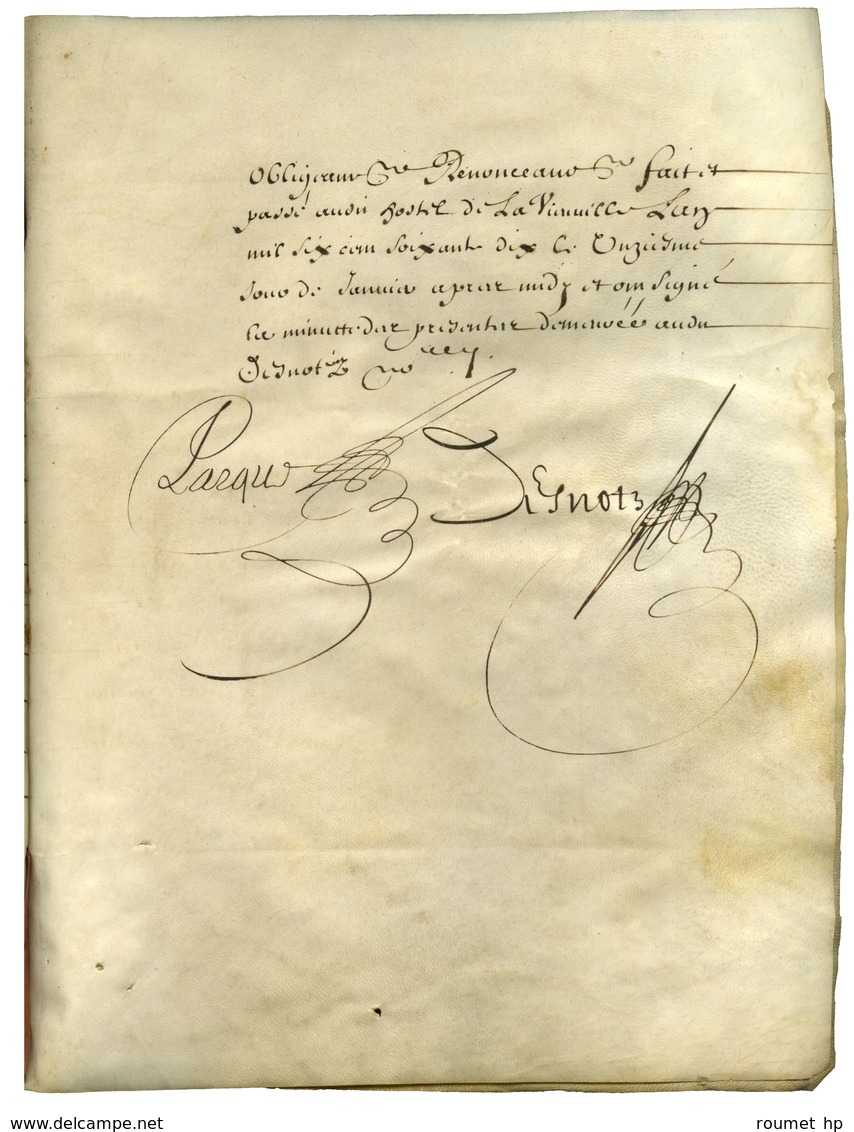 Obligeant &c Renonceant &c fait et
passé audit hostel de La Vieuville Lan
mil six cens soixante dix le Unziesme
Jour de Janvier apres midy et ont signé
la minutte des presentes demeurée audit
Desnotz no.re
Parque Desnotz
www.delcampe.net
roumet hp